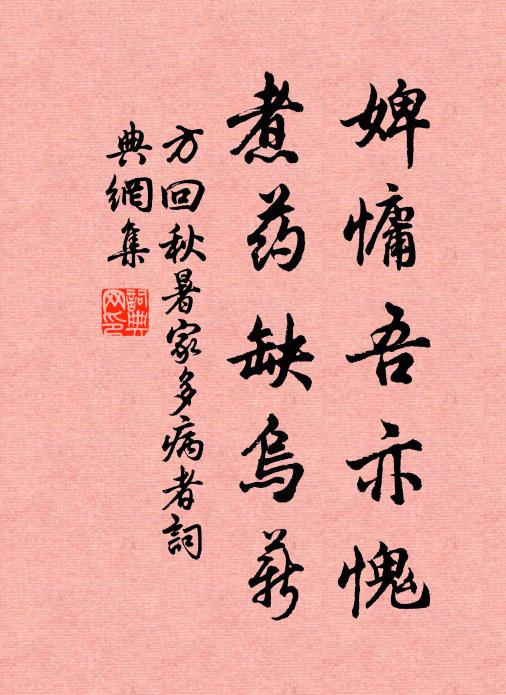 婢慵吾亦愧
煮药缺乌薪
方回秋暑家多病者詞
典網集
詞典網印